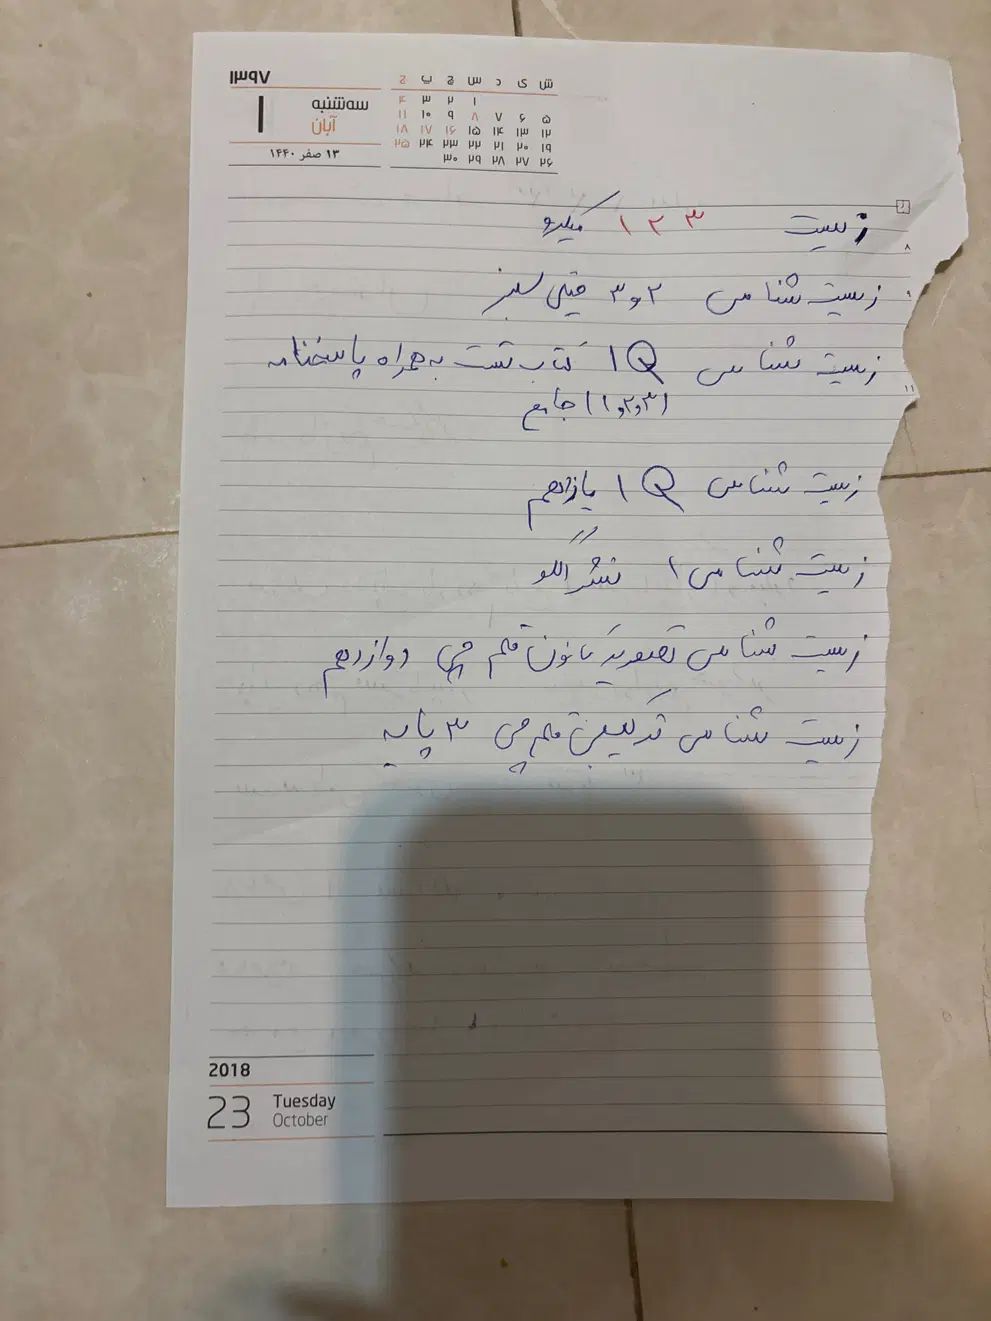 ۱۳۹۷
۱
سه‌شنبه
آبان
۱۳ صفر ۱۴۴۰
ش ی د س چ پ ج
۱ ۲ ۳ ۴
۵ ۶ ۷ ۸ ۹ ۱۰ ۱۱
۱۲ ۱۳ ۱۴ ۱۵ ۱۶ ۱۷ ۱۸
۱۹ ۲۰ ۲۱ ۲۲ ۲۳ ۲۴ ۲۵
۲۶ ۲۷ ۲۸ ۲۹ ۳۰
زیست ۱ ۲ ۳ میکرو
۸
زیست شناسی ۲ و ۳ خیلی سبز
۹
زیست شناسی IQ کتاب تست به همراه پاسخنامه
۱۱
(۱،۲،۳) جامع
زیست شناسی IQ یازدهم
زیست شناسی ۱ نشر الگو
زیست شناسی تصویری کانون قلم چی دوازدهم
زیست شناسی ترکیبی قلم چی ۳ پایه
2018
23 Tuesday
October